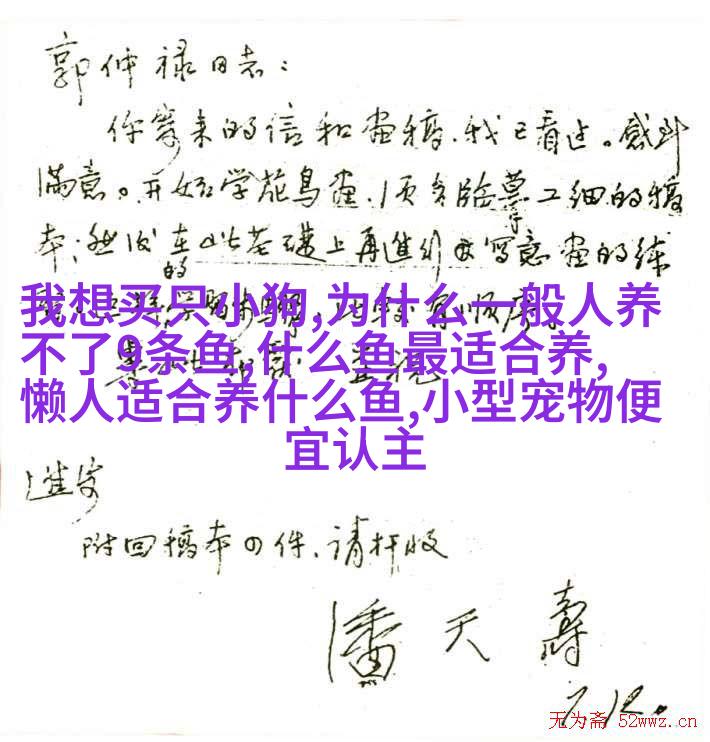 郭仲禄同志：
你寄来的信和画稿，我已看过。感到
满意。开始学花鸟画，须多临摹工细的稿
本；然后在此基础上再进行写意画的练
的
我想买只小狗,为什么一般人养
不了9条鱼,什么鱼最适合养,
懒人适合养什么鱼,小型宠物便
宜认主
进安
附回稿本四件、请检收
潘天寿
7.12.
无为斋 52wwz.cn